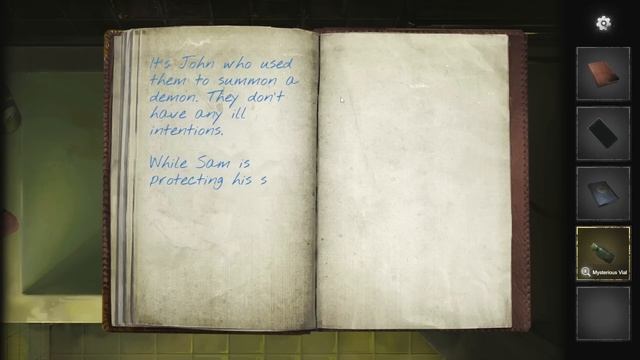 It's John who used
them to summon a
demon. They don't
have any ill
intentions.
While Sam is
protecting his s
Mysterious Vial